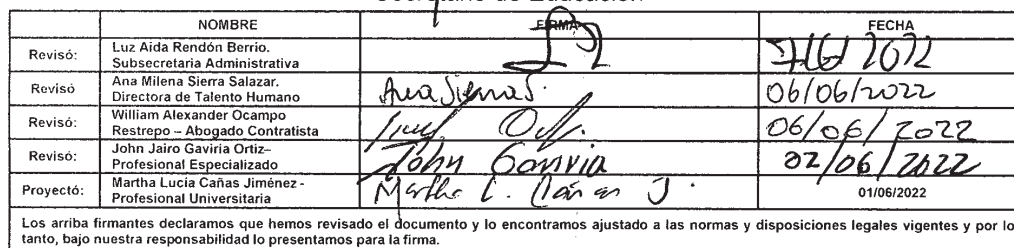 Secretario de Educación
NOMBRE FIRMA FECHA
Revisó: Luz Aida Rendón Berrio.
Subsecretaria Administrativa
7/6/2022
Revisó Ana Milena Sierra Salazar.
Directora de Talento Humano
Ana Sierra S. 06/06/2022
Revisó: William Alexander Ocampo
Restrepo – Abogado Contratista
06/06/2022
Revisó: John Jairo Gaviria Ortiz–
Profesional Especializado
John Gaviria 02/06/2022
Proyectó: Martha Lucía Cañas Jiménez -
Profesional Universitaria
Martha L. Cañas J. 01/06/2022
Los arriba firmantes declaramos que hemos revisado el documento y lo encontramos ajustado a las normas y disposiciones legales vigentes y por lo
tanto, bajo nuestra responsabilidad lo presentamos para la firma.